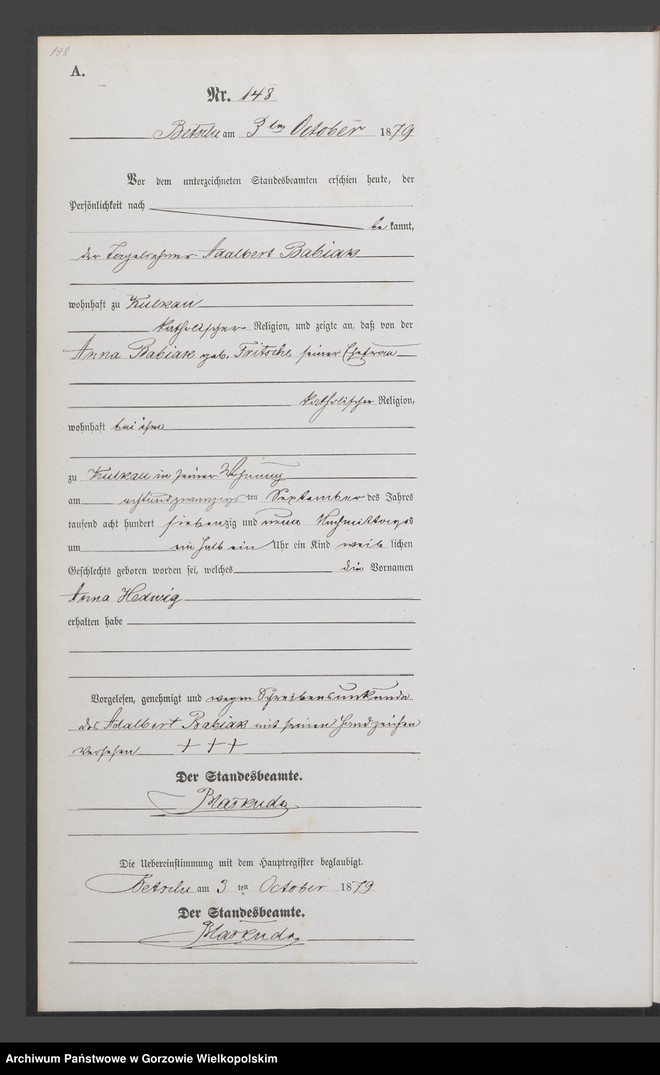 148
A.
Nr. 148
Betsche am 3ten October 1879
Vor dem unterzeichneten Standesbeamten erschien heute, der
Persönlichkeit nach
be kannt,
der Adalbert Babiak
wohnhaft zu Kulkau
katholischer Religion, und zeigte an, daß von der
Anna Babiak geb. Fritsche seiner Ehefrau
katholischer Religion,
wohnhaft bei ihm
zu Kulkau in seiner Wohnung
am achtundzwanzigs ten September des Jahres
tausend acht hundert siebenzig und neun Nachmittags
um ein halb ein Uhr ein Kind weib lichen
Geschlechts geboren worden sei, welches die Vornamen
Anna Hedwig
erhalten habe
Vorgelesen, genehmigt und wegen Schreibensunkunde
des Adalbert Babiak mit seinem Handzeichen
versehen + + +
Der Standesbeamte.
Die Uebereinstimmung mit dem Hauptregister beglaubigt.
Betsche am 3 ten October 1879
Der Standesbeamte.
Archiwum Państwowe w Gorzowie Wielkopolskim